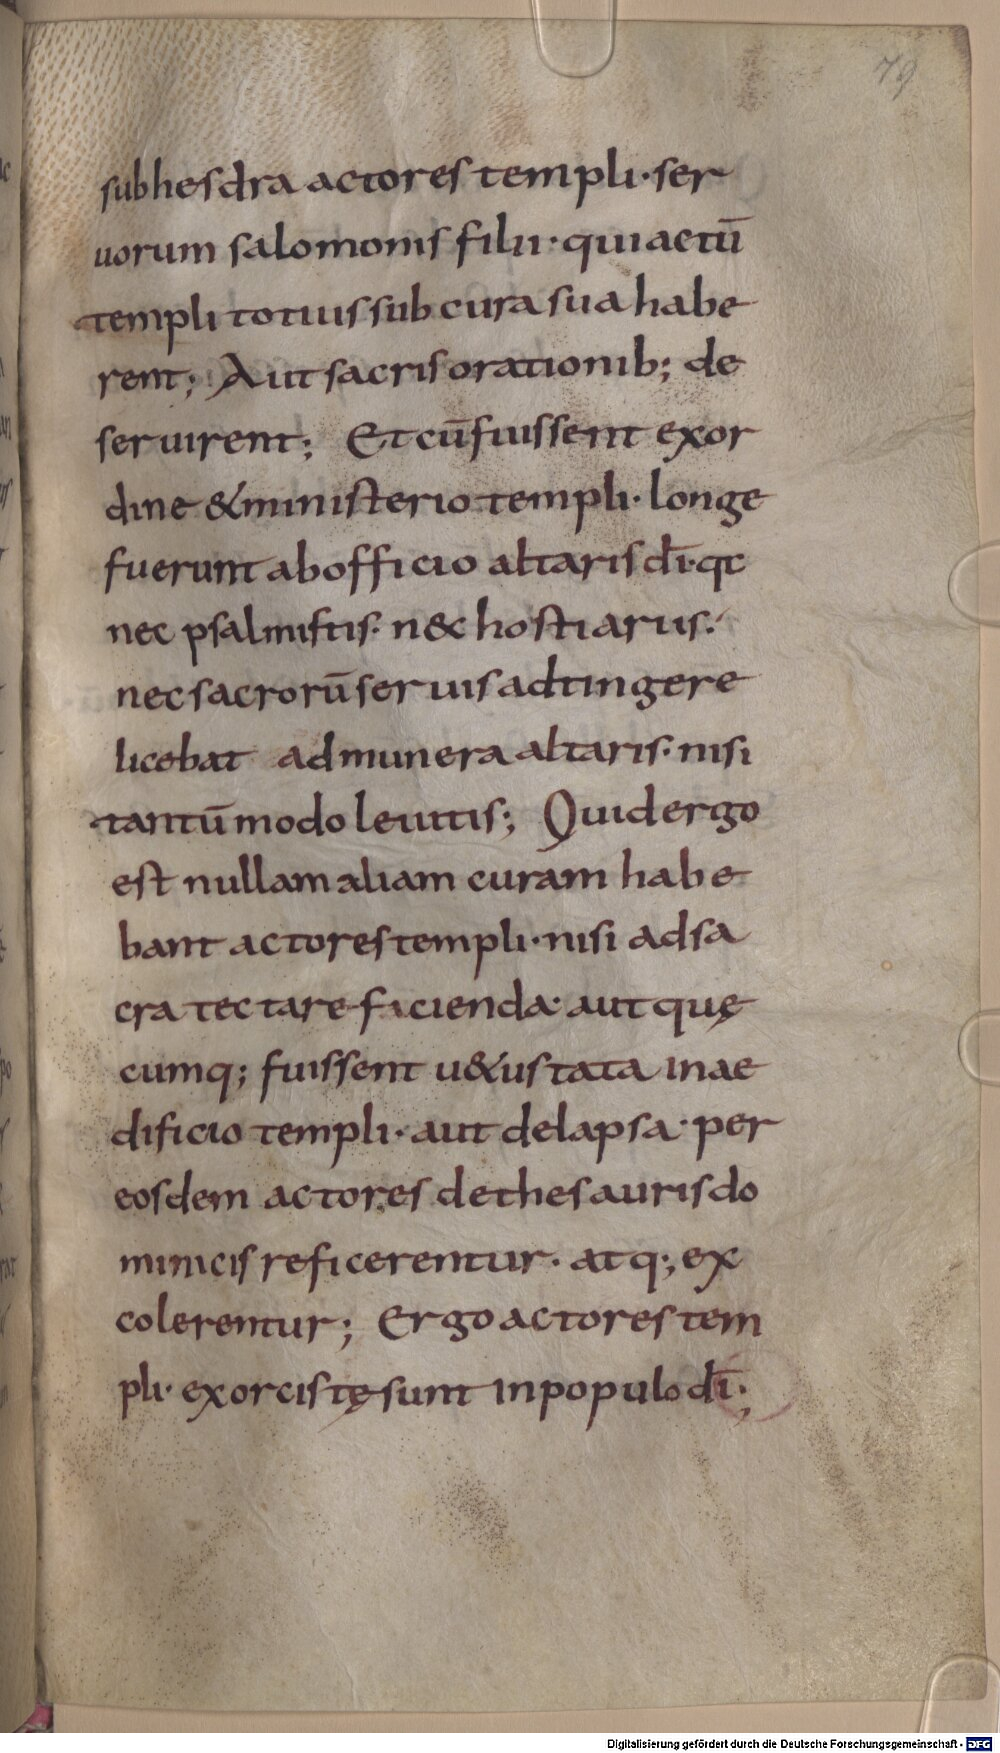 79
sub hesdra actores templi· ser
uorum salomonis filii· qui actū
templi totius sub cura sua habe
rent; Aut sacris orationib; de
seruirent; Et cū fuissent exor
dine & ministerio templi· longe
fuerunt ab officio altaris dī· qc
nec psalmistis· n&c hostiariis·
nec sacrorū seruis adtingere
licebat ad munera altaris· nisi
tantū modo leuitis; Quid ergo
est nullam aliam curam habe
bant actores templi· nisi ad sa
cra tectare facienda· aut quę
cumq; fuissent u&ustata in ae
dificio templi· aut delapsa· per
eosdem actores de thesauris do
minicis reficerentur· atq; ex
colerentur; Ergo actores tem
pli· exorcistę sunt in populo dī;
Digitalisierung gefördert durch die Deutsche Forschungsgemeinschaft - DFG